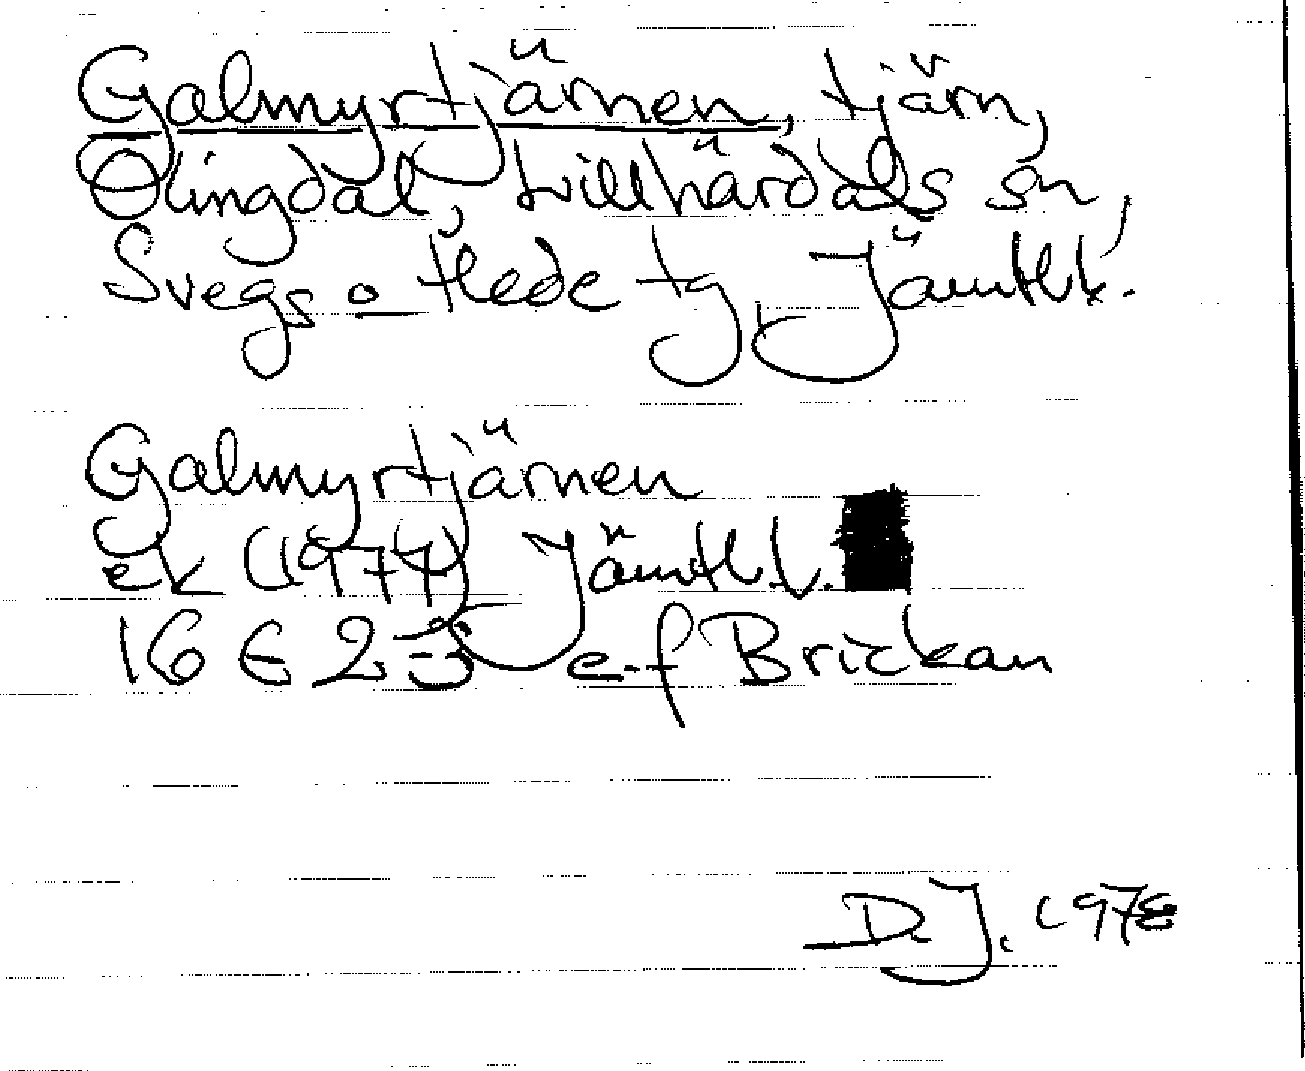 Galmyrtjärnen, tjärn,
Olingdal, Lillhärdals sn,
Svegs o Hede tg, Jämtl. l.
Galmyrtjärnen
ek (1977) Jämtl. l.
16 E 2 j e-f Brickan
D. J. 1978